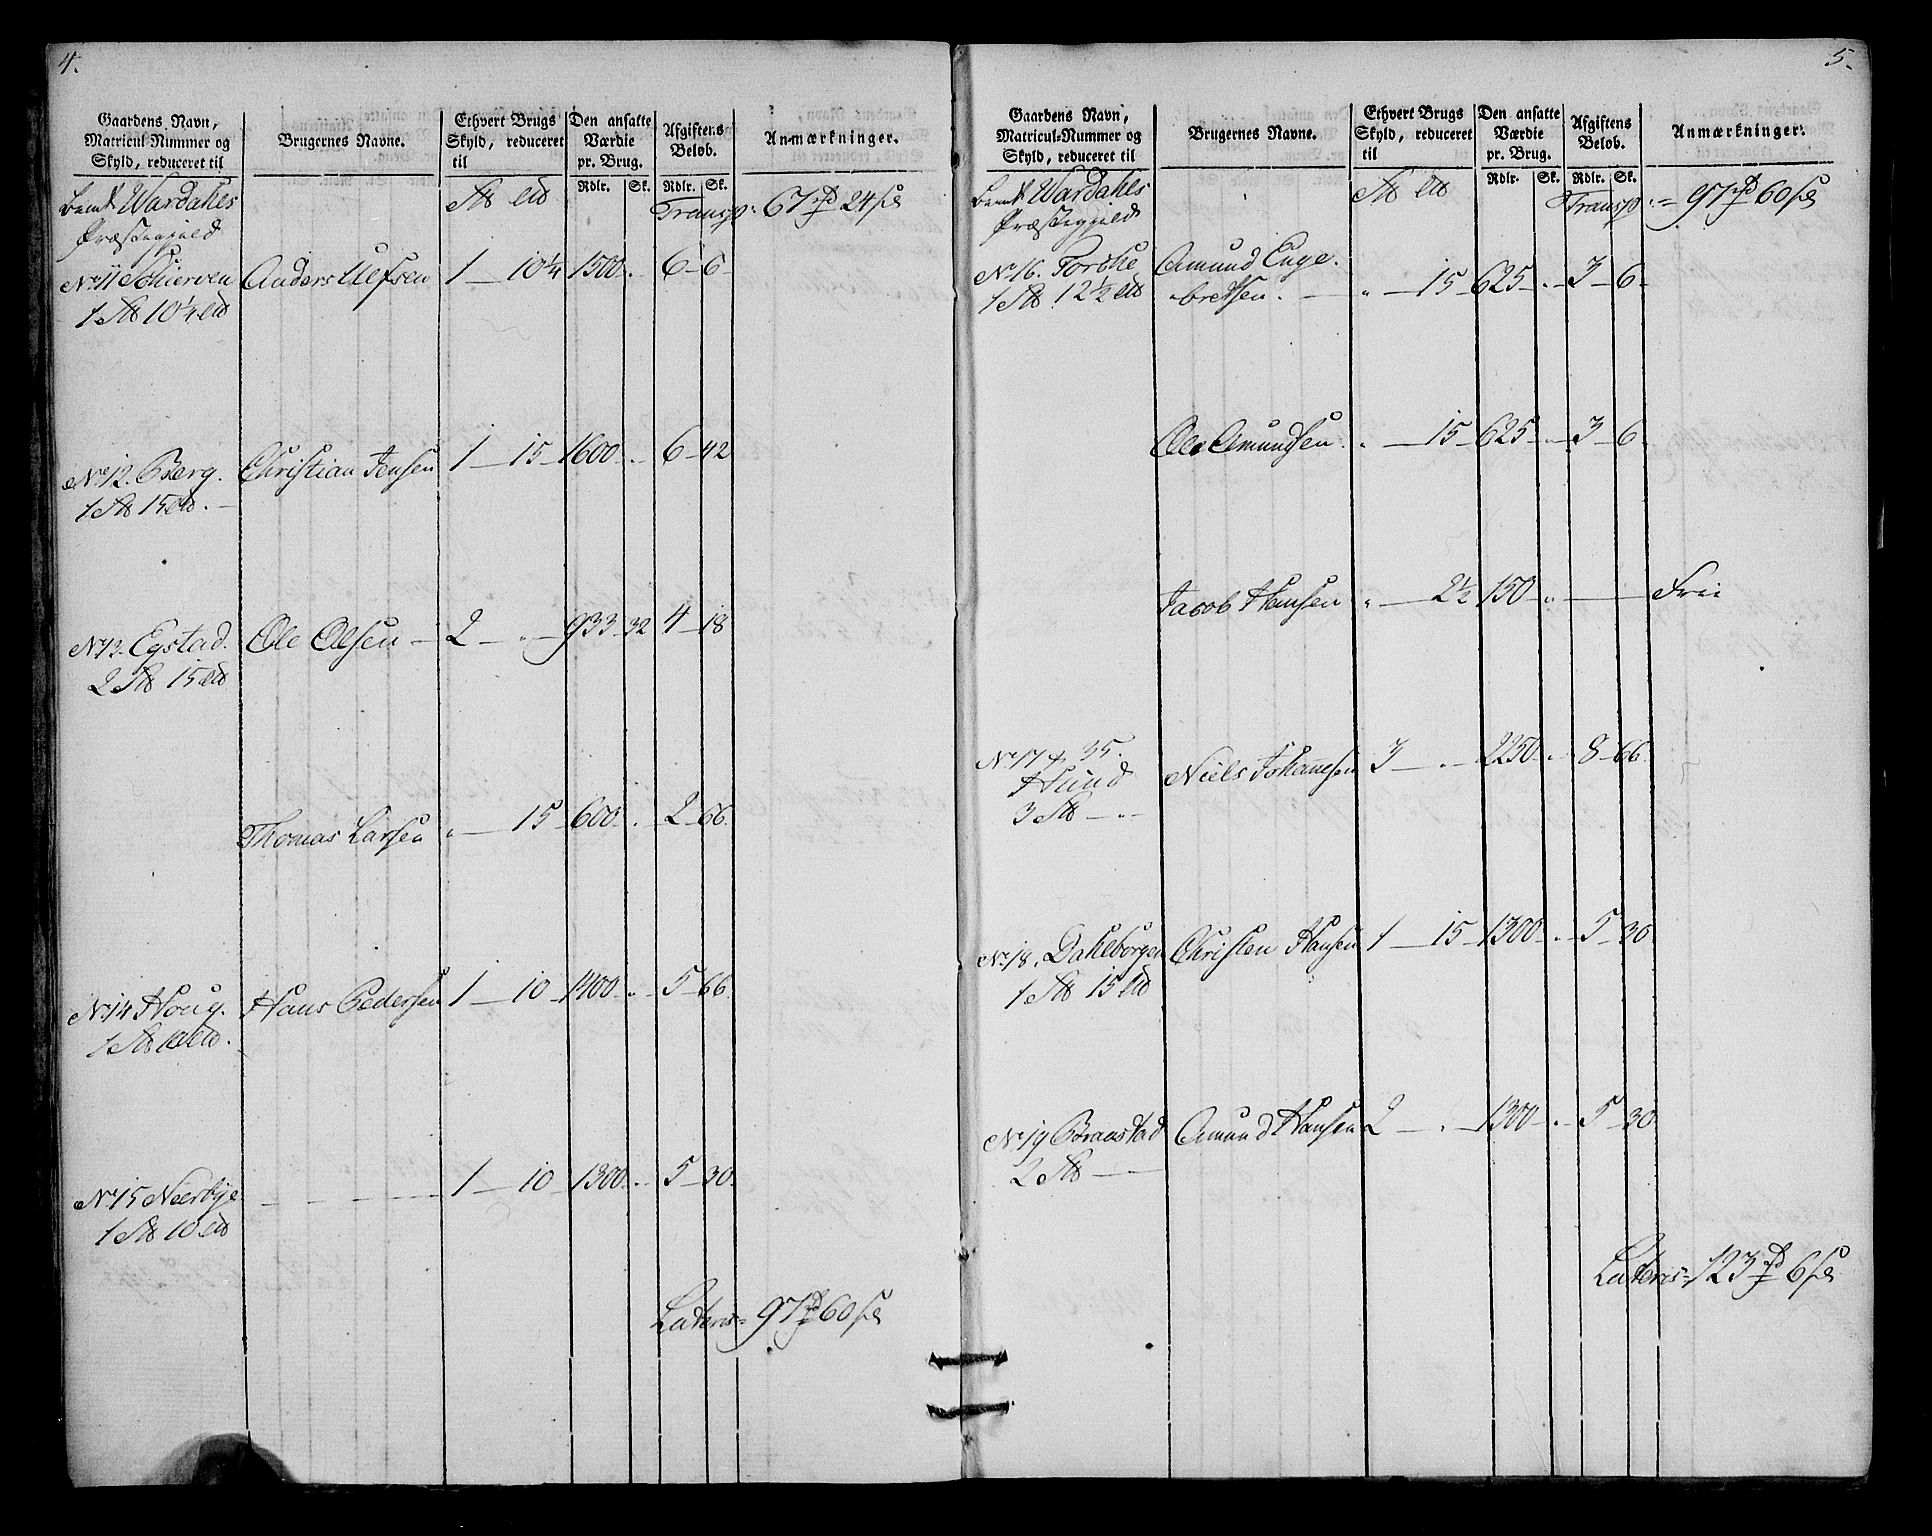 4.
Gaardens Navn,
Matricul-Nummer og
Skyld, reduceret til
Brugernes Navne.
Ethvert Brugs
Skyld, reduceret
til
Den ansatte
Værdie
pr. Brug.
Afgiftens
Beløb.
Anmærkninger.
Rdlr. Sk. Rdlr. Sk.
Wardahls
Præstegield
Transp: 67 rd 24 sk
No 11 Schierven Anders Ulfsen 1 — 10¼ 1500 „ 6 — 6
1 10¼
No 12. Berg. Christian Jensen 1 — 15 — 1600 „ 6 — 42
1 15
No 13. Egstad. Ole Olsen — 2 — „ — 933 — 32 4 — 18
2 15
Thomas Larsen „ — 15 — 600 „ 2 — 66
No 14 Houg. Hans Pedersen 1 — 10 — 1400 „ 5 — 66
1 10
No 15 Neerbye — — — 1 — 10 1300 „ 5 — 30
1 10
Lateris = 97 rd 60 sk
5.
Gaardens Navn,
Matricul-Nummer og
Skyld, reduceret til
Brugernes Navne.
Ethvert Brugs
Skyld, reduceret
til
Den ansatte
Værdie
pr. Brug.
Afgiftens
Beløb.
Anmærkninger.
Rdlr. Sk. Rdlr. Sk.
Wardahls
Præstegjeld
Transp: = 97 rd 60 sk
No 16. Torske Amund Enge-
1 12½ bretsen. — „ — 15 — 625 — „ — 3 — 6
Ole Amundsen. „ — 15 — 625 — „ — 3 — 6
Jacob Hansen „ — 2½ 150 „ — Frii
No 17 & 35.
Hund Niels Johannesen 3 — „ — 2250 „ 8 — 66
3 — „
No 18. Dahlborgen Christen Hansen 1 — 15 — 1300 „ 5 — 30
1 15
No 19 Braastad Amund Hansen 2 — „ — 1300 „ 5 — 30
2 —
Lateris = 123 rd 6 sk